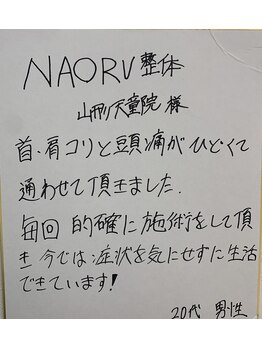 NAORU整体
山形天童院 様
首・肩コリと頭痛がひどくて
通わせて頂きました.
毎回 的確に施術をして頂
き 今では症状を気にせずに生活
できています!
20代 男性